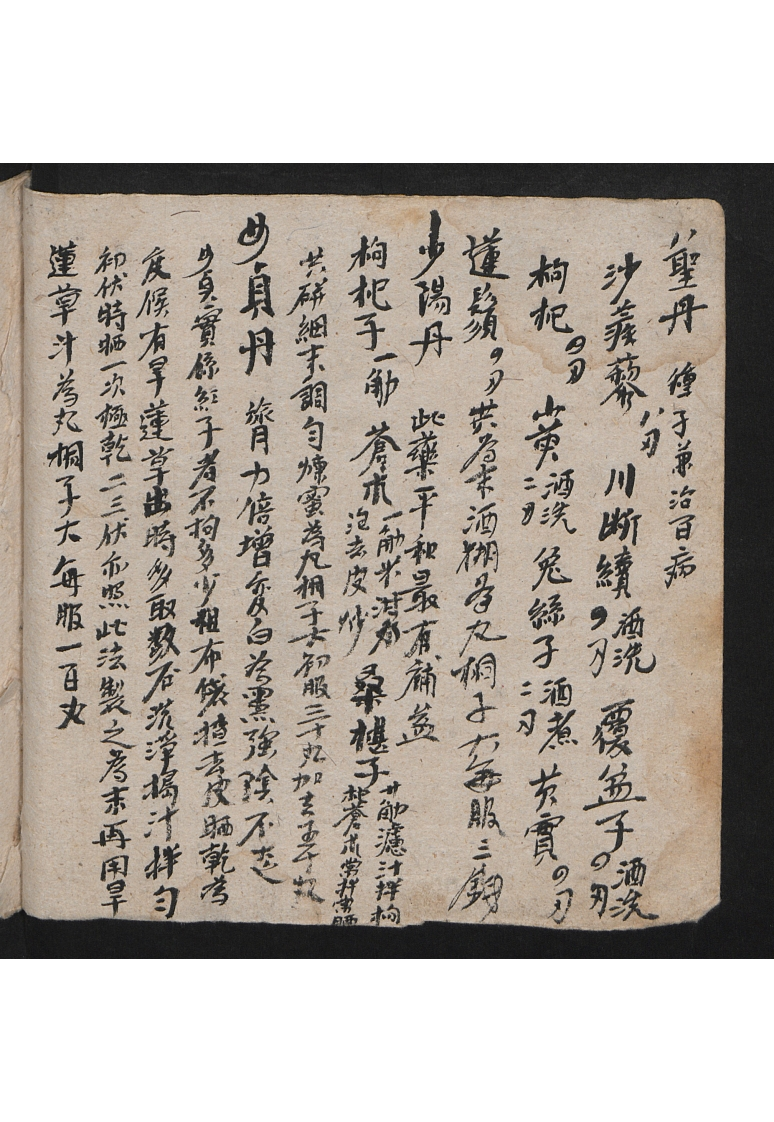 八聖丹 種子兼治百病
沙蒺藜八刃 川断續酒洗 覆盆子酒洗
枸杞 山萸酒洗二刃 兔絲子酒煮二刃 芡實
蓮鬚 共為末酒糊為丸桐子大每服三錢
少陽丹 此藥平和最有補益
枸杞子一觔 蒼朮一觔米泔泡去皮炒 桑椹子廿觔濾汁拌枸杞蒼朮常拌常晒
共研細末調勻煉蜜為丸桐子大初服三十丸加去五十丸
女貞丹 旅月力倍增变白為黑強陰不走
女貞實係紅子者不拘多少粗布袋擦去皮晒乾為
度候有旱蓮草出時多取数石洗淨搗汁拌勻
初伏時晒一次極乾二三伏亦照此法製之為末再用旱
蓮草汁為丸桐子大每服一百丸